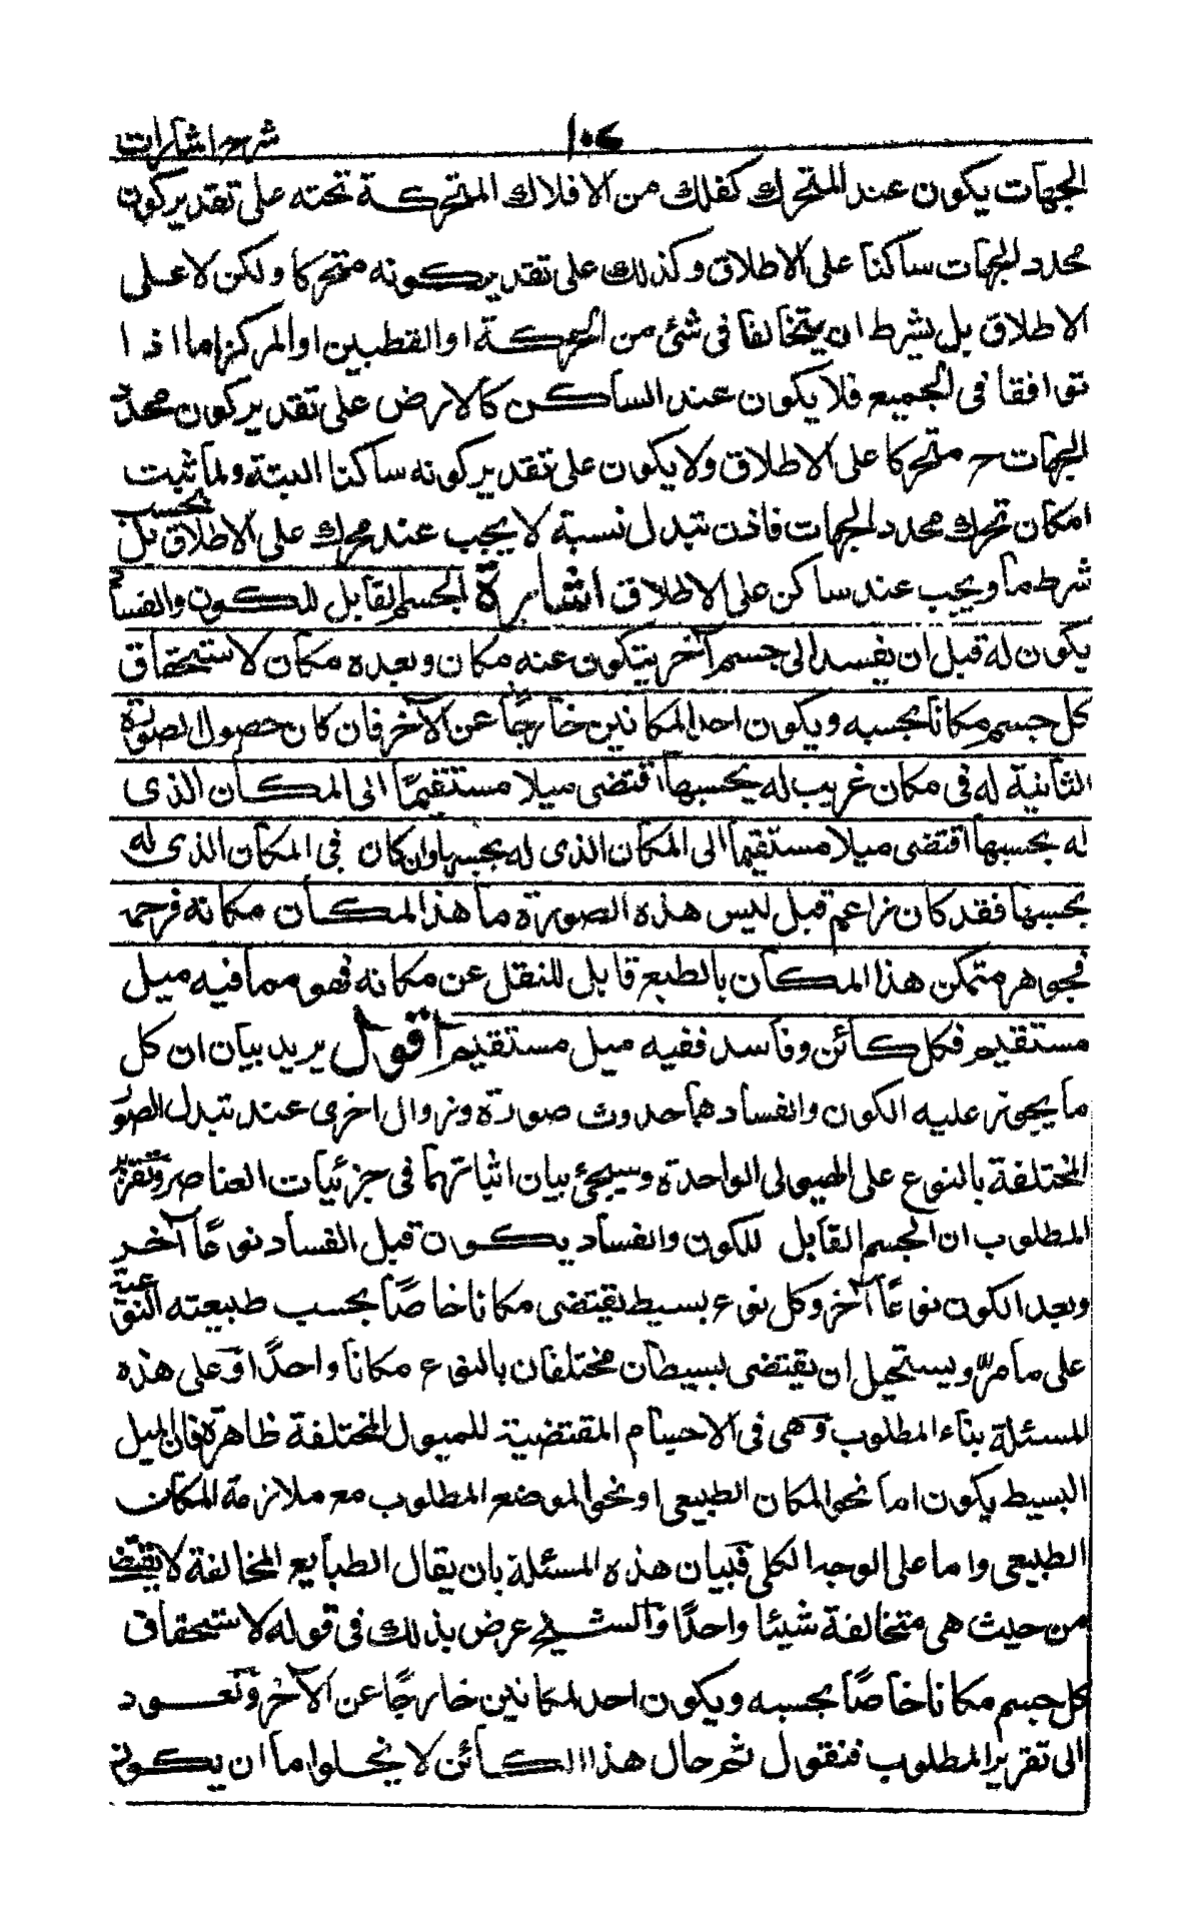 شرح اشارات ١٠٤
الجهات يكون عند المتحرك كفلك من الافلاك المتحركة تحته على تقدير كون
محدد الجهات ساكنا على الاطلاق وكذلك على تقدير كونه متحركا ولكن لا على
الاطلاق بل بشرط ان يتخالفا فى شئ من الحركة او القطبين او المركز اما اذا
توافقا فى الجميع فلا يكون عند الساكن كالارض على تقدير كون محدد
الجهات ح متحركا على الاطلاق ولا يكون على تقدير كونه ساكنا البتة ولما ثبت
امكان تحرك محدد الجهات فاذن تبدل نسبة لا يجب عند محرك على الاطلاق بل بحسب
شرط ما ويجب عند ساكن على الاطلاق اشارة الجسم القابل للكون والفساد
يكون له قبل ان يفسد الى جسم آخر يتكون عنه مكان وبعده مكان لاستحقاق
كل جسم مكانا بحسبه ويكون احد المكانين خارجًا عن الآخر فان كان حصول الصورة
الثانية له فى مكان غريب له بحسبها اقتضى ميلا مستقيمًا الى المكان الذى
له بحسبها اقتضى ميلا مستقيما الى المكان الذى له بحسبها وان كان فى المكان الذى له
بحسبها فقد كان زاحم قبل لبس هذه الصورة ما هذا المكان مكانه فزحمه
فجوهر متمكن هذا المكان بالطبع قابل للنقل عن مكانه فهو مما فيه ميل
مستقيم فكل كائن وفاسد ففيه ميل مستقيم اقول يريد بيان ان كل
ما يجوز عليه الكون والفساد هما حدوث صورة وزوال اخرى عند تبدل الصور
المختلفة بالنوع على الهيولى الواحدة وسيجئ بيان اثباتهما فى جزئيات العناصر وتقرير
المطلوب ان الجسم القابل للكون والفساد يكون قبل الفساد نوعًا آخر
وبعد الكون نوعًا آخر وكل نوع بسيط يقتضى مكانا خاصًا بحسب طبيعته النوعية
على ما مرّ ويستحيل ان يقتضى بسيطان مختلفان بالنوع مكانا واحدًا وعلى هذه
المسئلة بناء المطلوب وهى فى الاجسام المقتضية للميول المختلفة ظاهرة فان الميل
البسيط يكون اما نحو المكان الطبيعى او نحو الموضع المطلوب مع ملازمة المكان
الطبيعى واما على الوجه الكلى فبيان هذه المسئلة بان يقال الطبايع المخالفة لا يقتضى
من حيث هى متخالفة شيئا واحدًا والشيخ عرض بذلك فى قوله لاستحقاق
كل جسم مكانا خاصًا بحسبه ويكون احد المكانين خارجًا عن الآخر ونعود
الى تقرير المطلوب فنقول ثم حال هذا الكائن لا يخلوا ما ان يكون